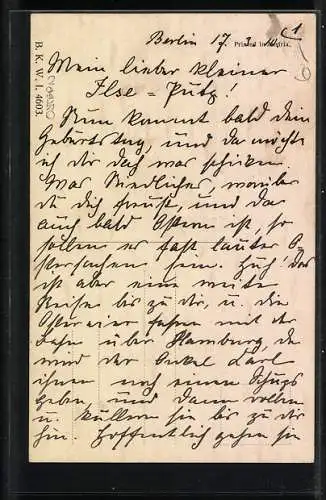 Berlin 17. 3.
Printed in Austria.
B. K. W. I. 4603.
Mein lieber kleiner
Ilse = Putz!
Nun kommt bald dein
Geburtstag, und da möchte
ich dir doch was schicken.
Was Niedliches, worüber
du dich freust, und da
auch bald Ostern ist, so
sollen es fast lauter O-
stersachen sein. Huh! das
ist aber eine weite
Reise bis zu dir, u. die
Ostereier fahren mit der
Bahn über Hamburg, da
wird der Onkel Karl
ihnen noch einen Schups
geben, und dann rollen
u. kullern sie bis zu dir
hin. Hoffentlich gehen sie